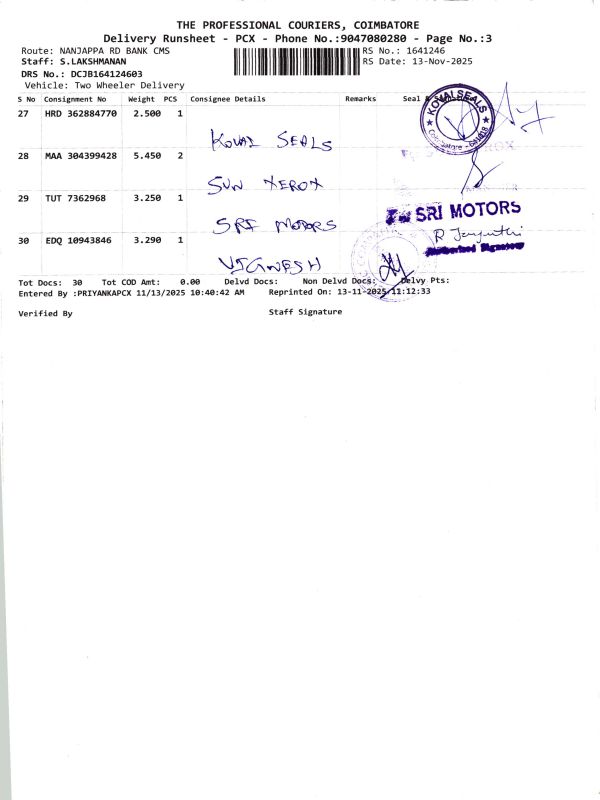 THE PROFESSIONAL COURIERS, COIMBATORE
Delivery Runsheet - PCX - Phone No.:9047080280 - Page No.:3
Route: NANJAPPA RD BANK CMS RS No.: 1641246
Staff: S.LAKSHMANAN RS Date: 13-Nov-2025
DRS No.: DCJB164124603
Vehicle: Two Wheeler Delivery
S No Consignment No Weight PCS Consignee Details Remarks Seal &
KOVAI SEALS
Coimbatore - 641018
27 HRD 362884770 2.500 1
KOVAI SEALS
28 MAA 304399428 5.450 2
SUN XEROX
29 TUT 7362968 3.250 1
SRI MOTORS
SRI MOTORS
30 EDQ 10943846 3.290 1
R Jayanthi
Authorised Signatory
VIGNESH
Tot Docs: 30 Tot COD Amt: 0.00 Delvd Docs: Non Delvd Docs: Delvy Pts:
Entered By :PRIYANKAPCX 11/13/2025 10:40:42 AM Reprinted On: 13-11-2025 11:12:33
Verified By Staff Signature